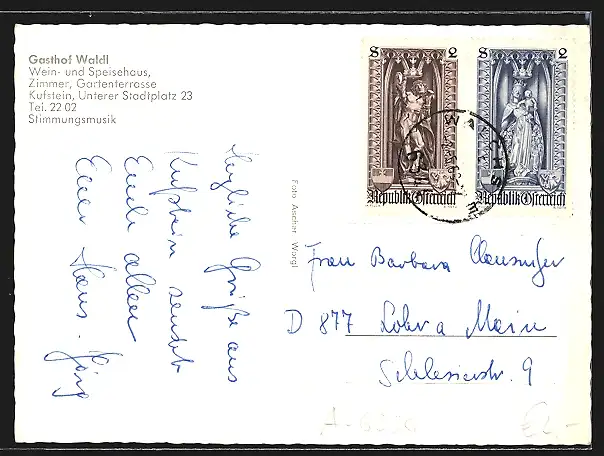 Gasthof Waldl
Wein- und Speisehaus,
Zimmer, Gartenterrasse
Kufstein, Unterer Stadtplatz 23
Tel. 22 02
Stimmungsmusik
S 2
Republik Österreich
S 2
Republik Österreich
Herzliche Grüße aus
Kufstein sendet
Euch allen
Euer Hans-Jörg
Foto Ascher, Wörgl
Frau Barbara
D 877 Lohr a Main
Schlesierstr. 9